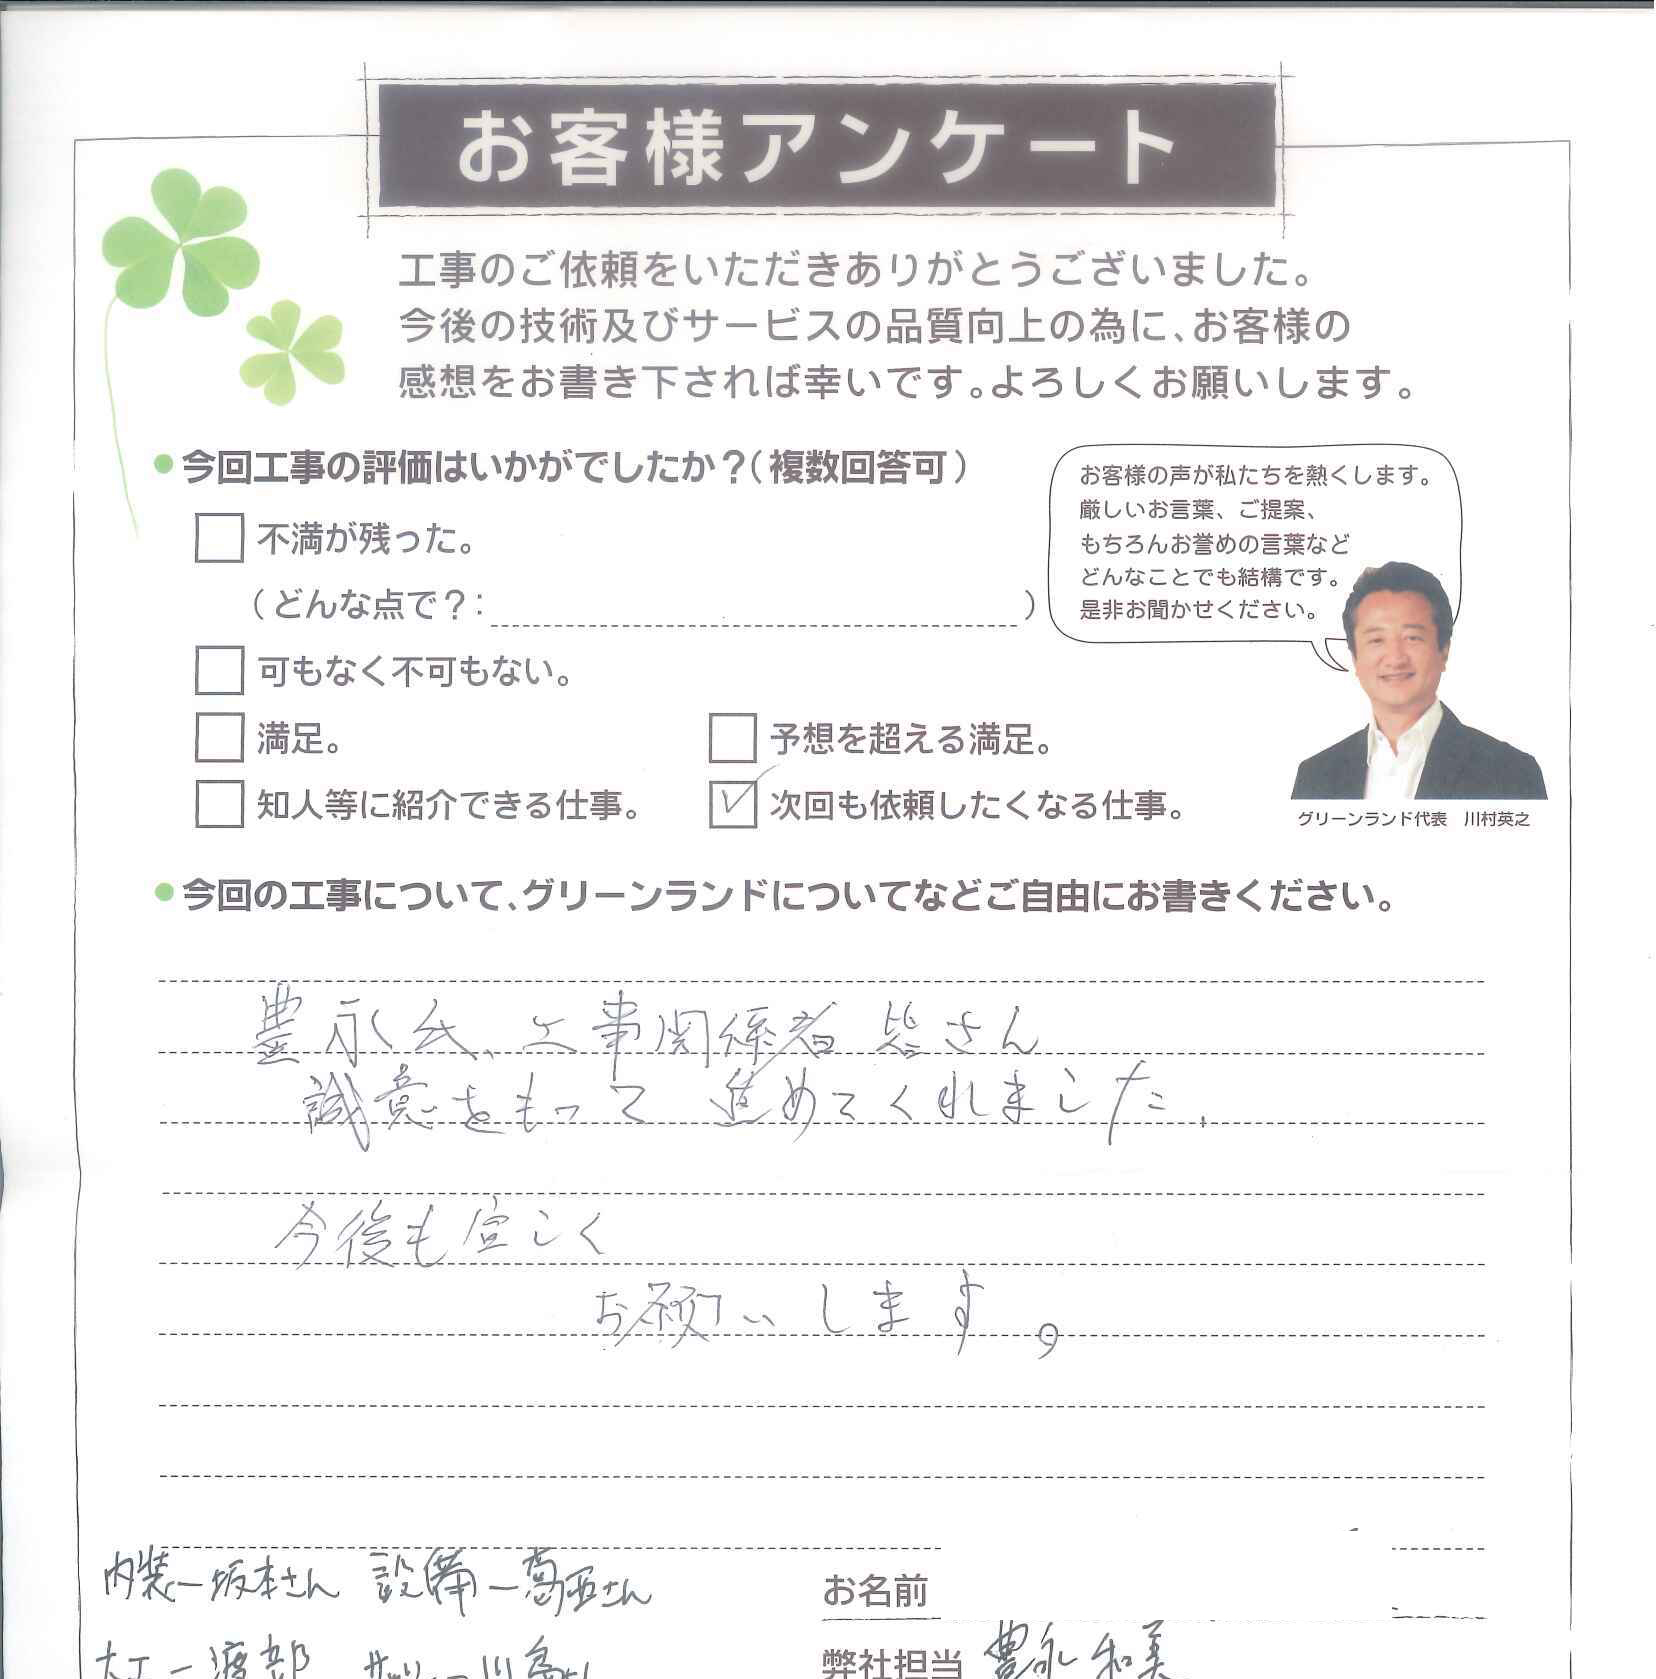 お客様アンケート
工事のご依頼をいただきありがとうございました。
今後の技術及びサービスの品質向上の為に、お客様の
感想をお書き下されば幸いです。よろしくお願いします。
●今回工事の評価はいかがでしたか？（複数回答可）
不満が残った。
（どんな点で？：　）
可もなく不可もない。
満足。
予想を超える満足。
知人等に紹介できる仕事。
次回も依頼したくなる仕事。
お客様の声が私たちを熱くします。
厳しいお言葉、ご提案、
もちろんお誉めの言葉など
どんなことでも結構です。
是非お聞かせください。
グリーンランド代表　川村英之
●今回の工事について、グリーンランドについてなどご自由にお書きください。
豊永氏、工事関係者 皆さん
誠意をもって 進めてくれました.
今後も宜しく
お願い します。
内装ー坂本さん 設備ー葛西さん
大工ー渡部 ー川島
お名前
弊社担当 豊永 和美